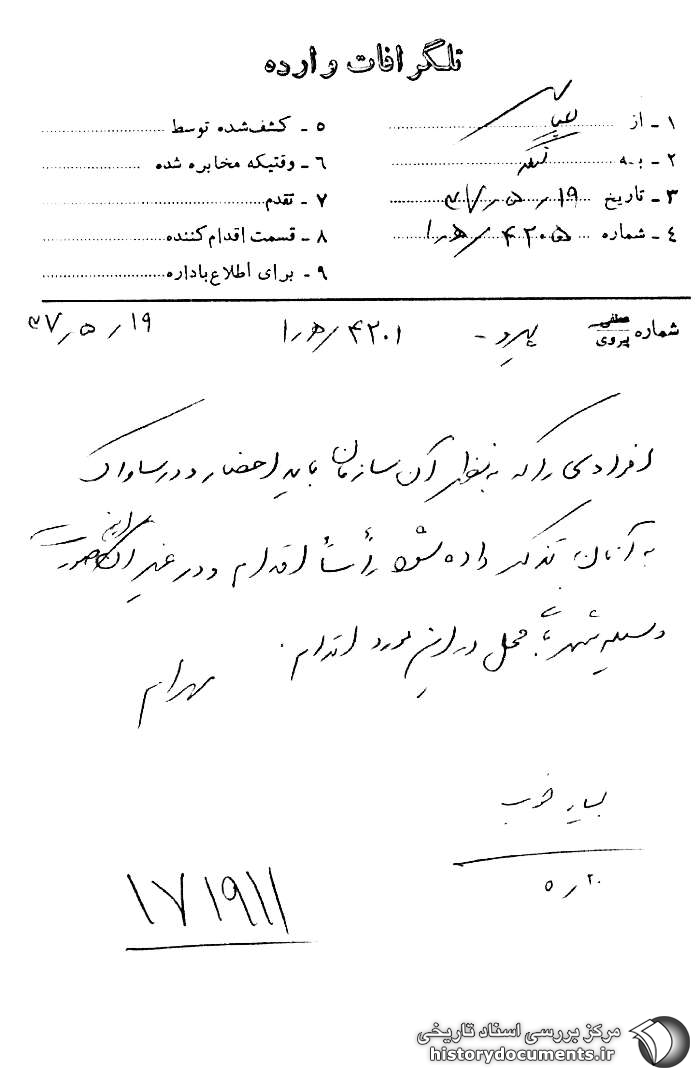 تلگرافات وارده
۱ - از
۲ - به
۳ - تاریخ ۱۹ ر ۵ ر ۳۷
۴ - شماره ۴۲۰۵ / ﻫ ر ۱
۵ - کشف شده توسط
۶ - وقتیکه مخابره شده
۷ - تقدم
۸ - قسمت اقدام کننده
۹ - برای اطلاع باداره
شماره عطفی پیروی پیرو - ۴۲۰۱ / ﻫ ر ۱ ۱۹ ر ۵ ر ۳۷
افرادی را که به نظر آن سازمان باید احضار و در ساواک
به آنان تذکر داده شود رأساً اقدام و در غیر این صورت
وسیله شهربانی محل در این مورد اقدام.
بهرام
بسیار خوب
۲۰ ر ۵
۱۷۱۹۱۱
مرکز بررسی اسناد تاریخی
historydocuments.ir